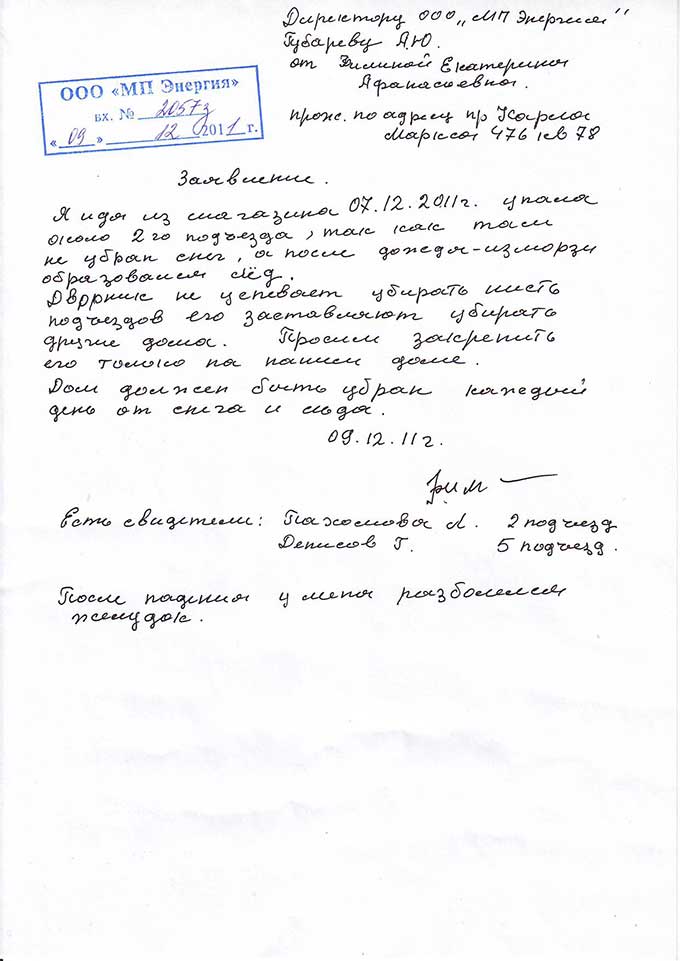 Директору ООО „МП Энергия"
Губареву А.Ю.
от Зиминой Екатерины
Афанасьевны.
прож. по адресу пр Карла
Маркса 476 кв 78
ООО «МП Энергия»
вх. № 2057з
« 09 » 12 2011 г.
Заявление.
Я идя из магазина 07.12.2011г. упала
около 2го подъезда, так как там
не убран снег, а после дождя-изморзи
образовался лёд.
Дворник не успевает убирать шесть
подъездов его заставляют убирать
другие дома. Просим закрепить
его только на нашем доме.
Дом должен быть убран каждый
день от снега и льда.
09.12.11г.
Есть свидетели: Пахомова Л. 2 подъезд
Денисов Г. 5 подъезд.
После падения у меня разболелся
желудок.